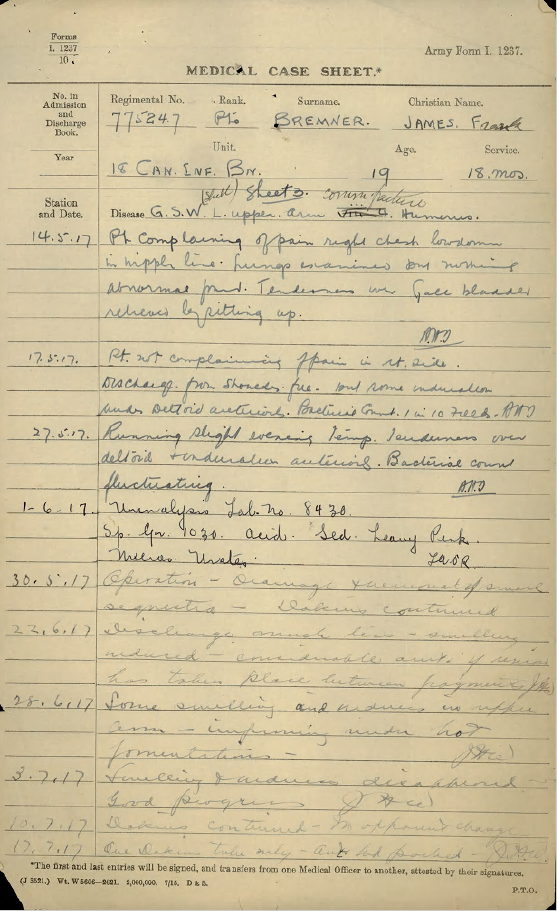 Forms
I. 1237
10.
Army Form I. 1237.
MEDICAL CASE SHEET.*
No. in
Admission
and
Discharge
Book.
Regimental No. Rank. Surname. Christian Name.
775247 Pte BREMNER. JAMES. Frank
Year
Unit. Age. Service.
18 CAN. INF. BN. 19 18. mos.
(Shell) Sheet 3. comm. fracture
Station
and Date.
Disease G.S.W. L. upper. arm Humerus.
14.5.17 Pt Complaining of pain right chest low down
in nipple line. Lungs examined but nothing
abnormal found. Tenderness over Gall bladder
relieved by sitting up.
17.5.17. Pt. not complaining of pain in rt. side.
Discharge. from Shoulder free. but some induration
under Deltoid anteriorly. Bacterial Count. 1 in 10 Fields.
27.5.17. Running slight evening Temp. Tenderness over
deltoid + induration anteriorly. Bacterial count
fluctuating.
1-6-17 Urinalysis Lab. No. 8430.
Sp. Gr. 1030. acid. Sed. Heavy Pink.
Micros Urates.
30.5.17 Operation - Drainage & removal of small
sequestra - Dakins continued
22.6.17 Discharge much less - swelling
reduced - considerable amt. of union
has taken place between fragments
28.6.17 Some swelling and redness in upper
arm - improving under hot
fomentations -
3.7.17 Swelling & redness disappeared -
Good progress
10.7.17 Dakins continued - No apparent change
17.7.17 One Dakins tube only -
*The first and last entries will be signed, and transfers from one Medical Officer to another, attested by their signatures.
(J 5521.) Wt. W5606—2621. 5,000,000. 7/15. D & S.
P.T.O.